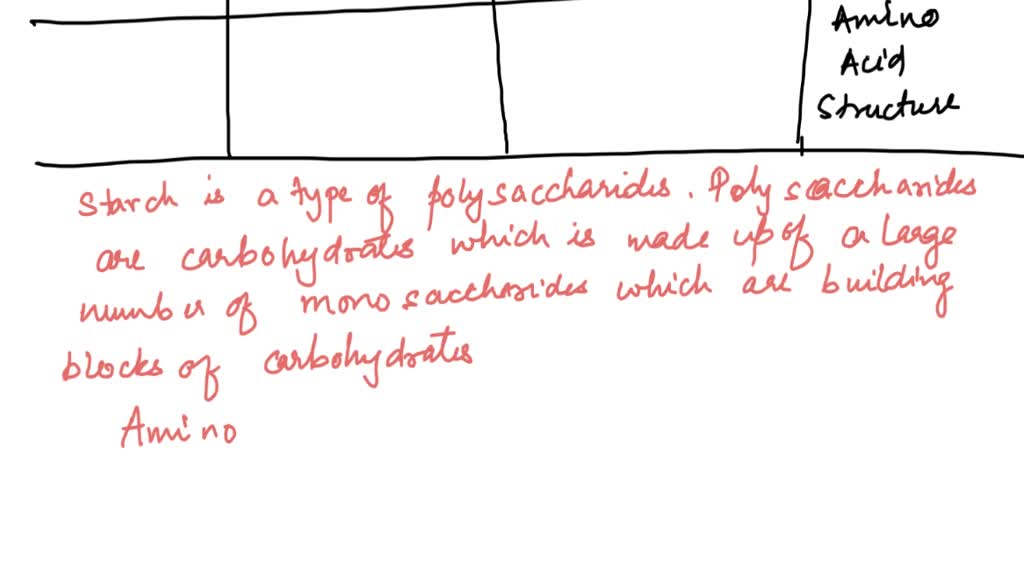 Amino
Acid
Structure
Starch is a type of polysaccharides. Polysaccharides
are carbohydrates which is made up of a large
number of monosaccharides which are building
blocks of carbohydrates
Amino